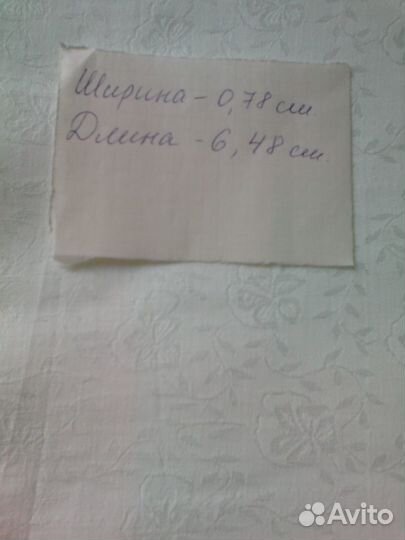 Ширина - 0,78 см.
Длина - 6,48 см.
Avito